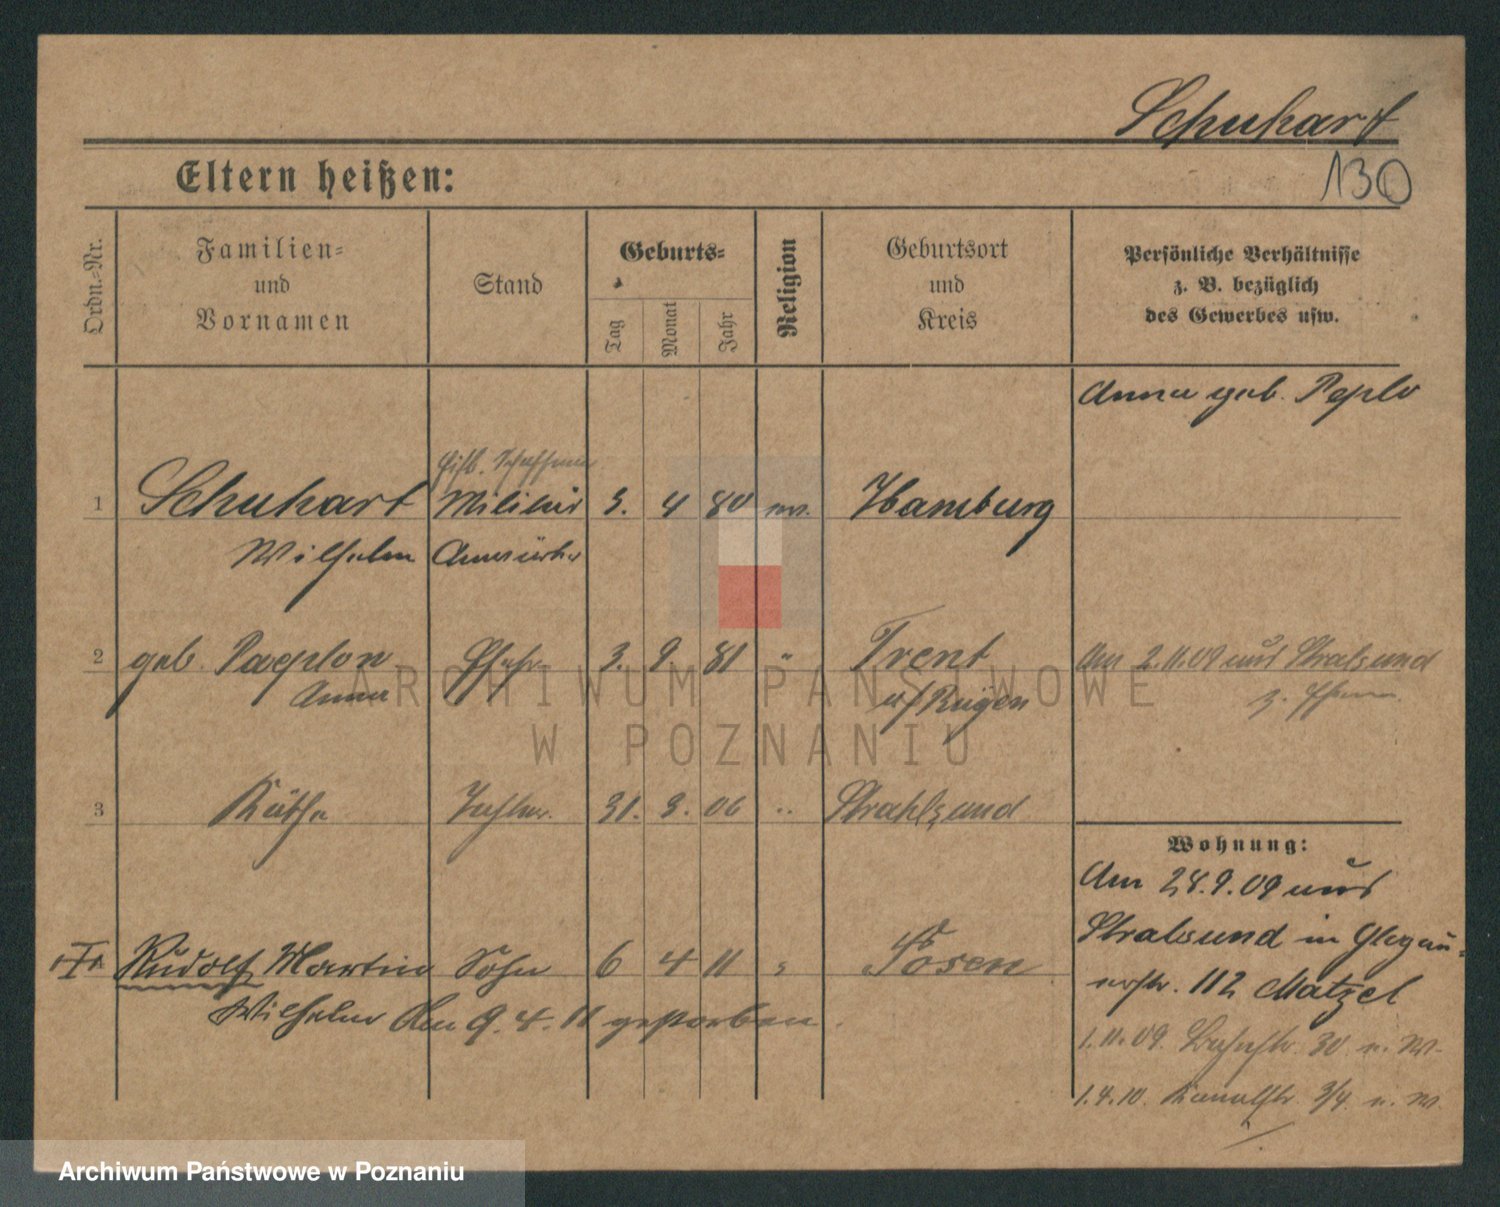 Schuhart
130
Eltern heißen:
Ordn.-Nr.
Familien-
und
Vornamen
Stand
Geburts-
Tag
Monat
Jahr
Religion
Geburtsort
und
Kreis
Persönliche Verhältnisse
z. B. bezüglich
des Gewerbes usw.
Anna geb. Peplo
1 Schuhart Militär 3. 4 80 ev. Hamburg
Wilhelm Anwärter
2 geb. Paeplon Ehefr. 3. 9. 81 " Trent Am 2.11.09 aus Stralsund
Anna a/Rügen
3 Käthe Tochter. 31. 3. 06 " Strahlsund
Wohnung:
Am 28.9.09 aus
Stralsund in Glogau-
erstr. 112 Matzel
Rudolf Martin Sohn 6 4 11 Posen
Wilhelm Am 9. 4. 11 gestorben.
1.11.09. 30 n. W.
1.4.10. Kanalstr. 3/4. n. W.
ARCHIWUM PAŃSTWOWE
W POZNANIU
Archiwum Państwowe w Poznaniu